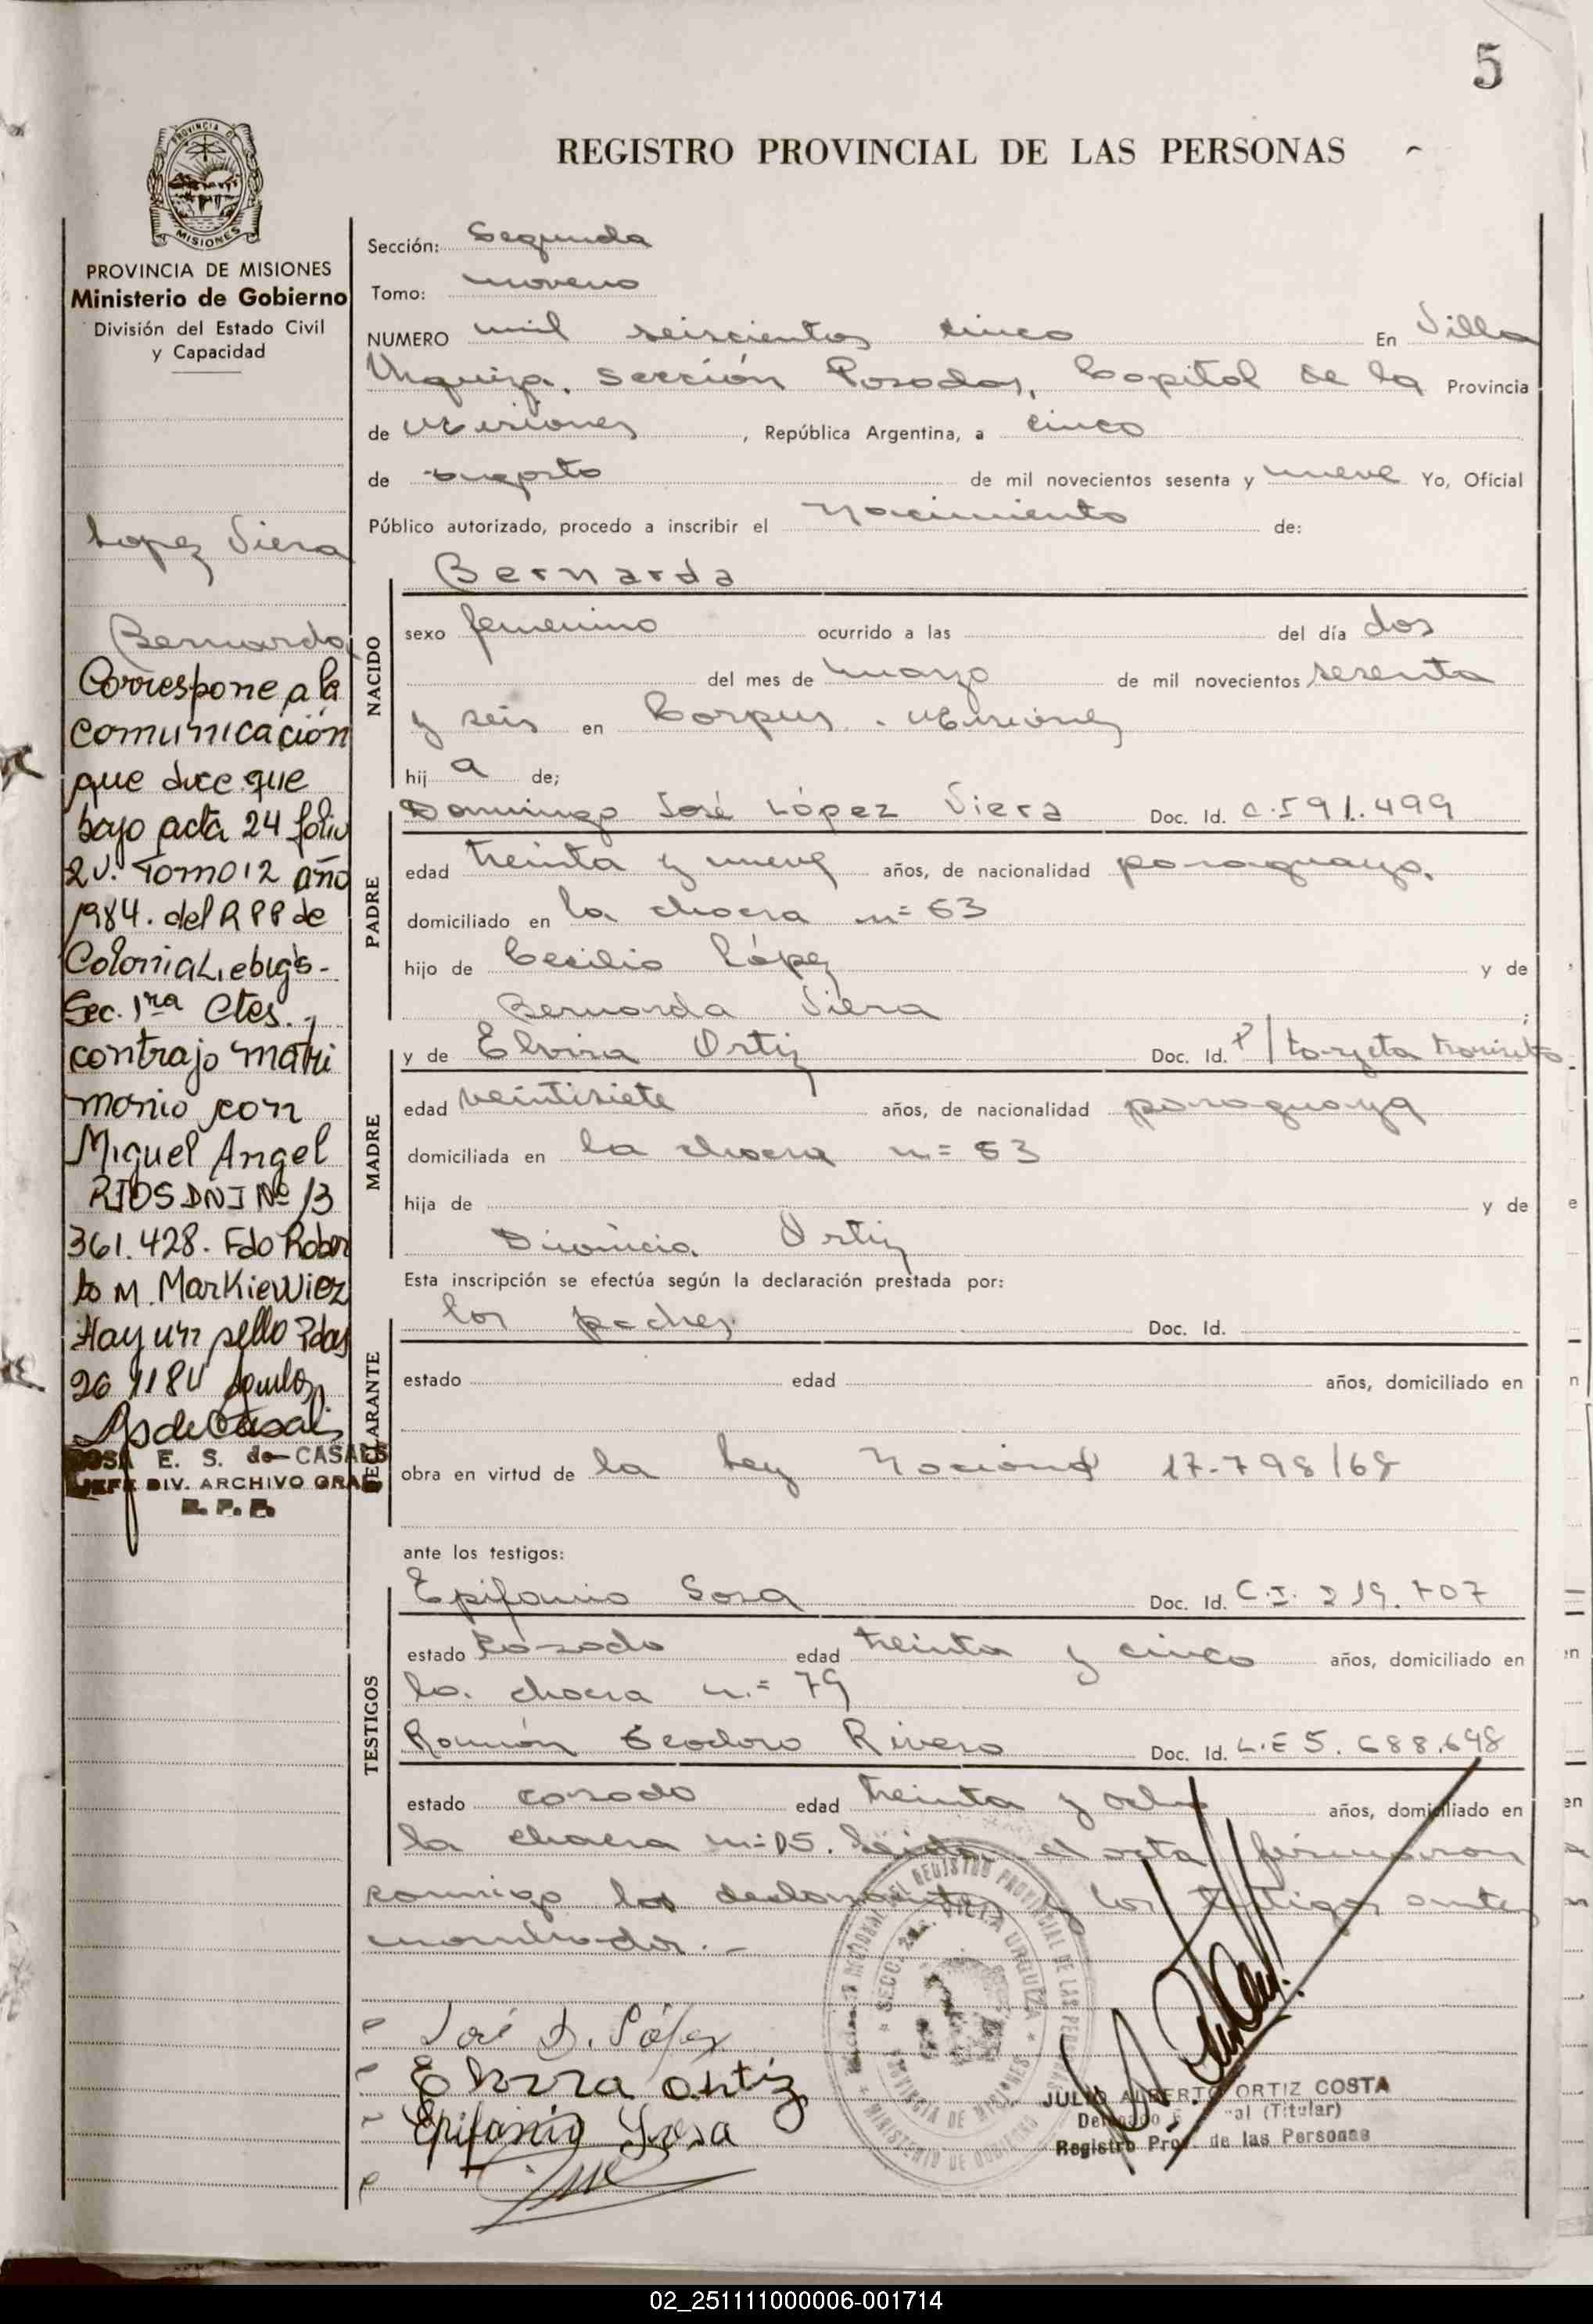 5
REGISTRO PROVINCIAL DE LAS PERSONAS
PROVINCIA DE MISIONES
PROVINCIA DE MISIONES
Ministerio de Gobierno
División del Estado Civil
y Capacidad
Lopez Viera
Bernarda
Correspone a la
comunicación
que dice que
bajo acta 24 folio
2V. Tomo 12 año
1984. del RPP de
Colonia Liebig's-
Sec. 1ra Ctes.,
contrajo matri
monio con
Miguel Angel
RIOS DNI Nº 13
361.428. Fdo Rober
to M. Markiewiez
Hay un sello Pdas
26 11 84
ROSA E. S. de CASALS
JEFE DIV. ARCHIVO GRAL
R. P. P.
Sección: Segunda
Tomo: noveno
NUMERO mil seiscientos cinco En Villa
Urquiza, sección Posadas, Capital de la Provincia
de Misiones, República Argentina, a cinco
de augosto de mil novecientos sesenta y nueve Yo, Oficial
Público autorizado, procedo a inscribir el Nacimiento de:
NACIDO
Bernarda
sexo femenino ocurrido a las del día dos
del mes de marzo de mil novecientos sesenta
y seis en Corpus. Misiones
hij a de;
PADRE
Domingo José López Viera Doc. Id. C.591.499
edad treinta y nueve años, de nacionalidad paraguayo.
domiciliado en la chacra nº 63
hijo de Cecilio López y de
Bernarda Viera;
MADRE
y de Elvira Ortiz Doc. Id. P/ tarjeta transito
edad veintisiete años, de nacionalidad paraguaya
domiciliada en la chacra nº 63
hija de y de
Dionicia Ortiz
Esta inscripción se efectúa según la declaración prestada por:
DECLARANTE
los padres. Doc. Id.
estado edad años, domiciliado en
obra en virtud de la Ley Nacional 17.798/68
ante los testigos:
TESTIGOS
Epifanio Sosa Doc. Id. C.I. 219.707
estado casado edad treinta y cinco años, domiciliado en
la chacra nº 79
Ramón Teodoro Rivero Doc. Id. L.E 5.688.648
estado casado edad treinta y ocho años, domiciliado en
la chacra nº 15. Leida el acta firmaron
conmigo los declarantes y los testigos antes
nombrados.-
José D. López
Elvira Ortiz
Epifanio Sosa
SECC. 2a. VILLA URQUIZA
PROVINCIA DE MISIONES
MINISTERIO DE GOBIERNO
JULIO ALBERTO ORTIZ COSTA
(Titular)
Registro Prov. de las Personas
02_251111000006-001714